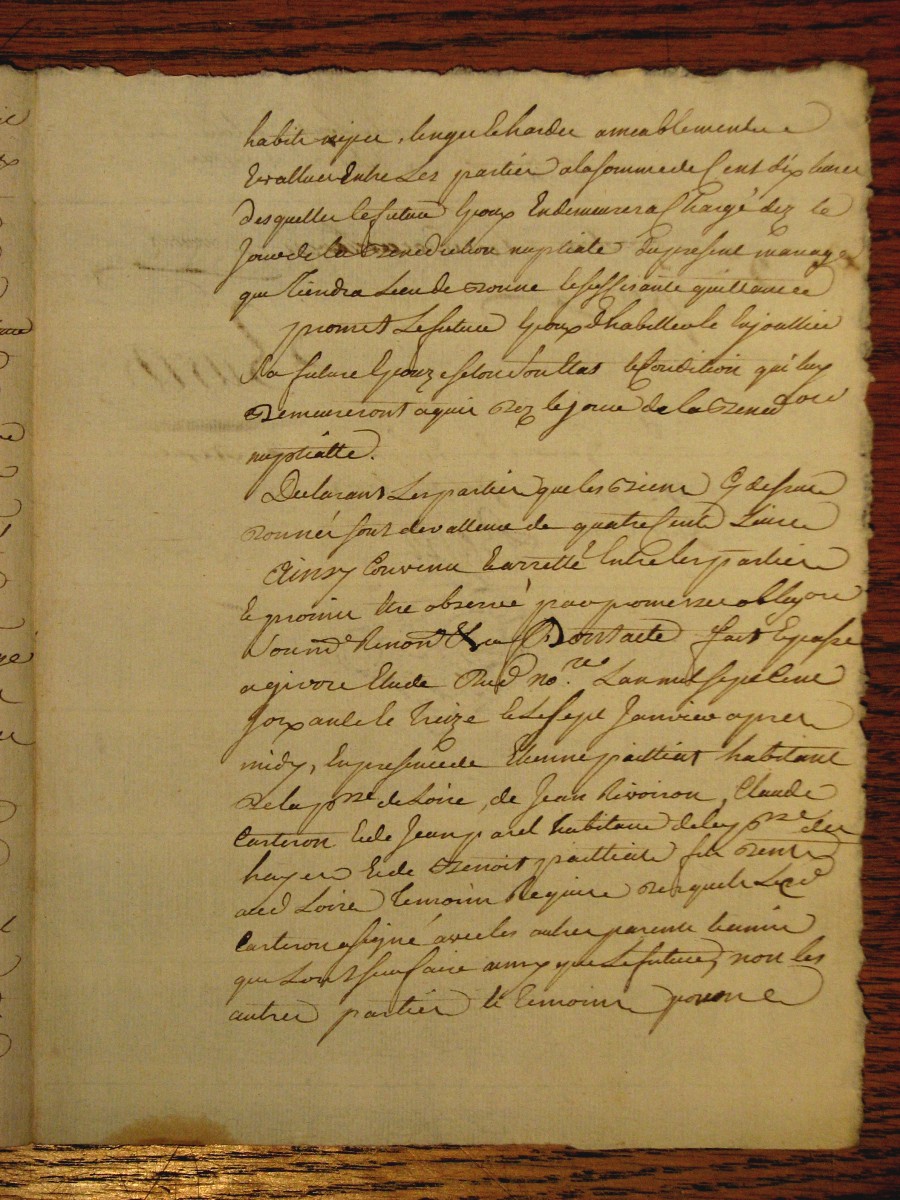 habits nipes, linges et hardes ameublements
Evallués Entre Les parties a la somme de Cent dix livres
desquelles le futur Epoux En demeurera Chargé dez le
Jour de la Benediction nuptiale du present mariage
que Tiendra Lieu de Bonne et suffisante quittance
promet Le futur Epoux d'habiller et Enjoallier
sa future Epouze selon son Etat et Condition qui luy
Demeureront aquis dez le jour de la Bened on
nuptialle.
Declarants Les parties que les Biens Cy dessus
Donnés sont de valleur de quatre Cents Livres
Ainsy Convenu et arretté Entre les parties
et promis Etre observé par promesses oblig on
Renon Dont acte fait et passé
a givors Etude Dud no.re L'an mil sept Cent
soixante et Treize et Le sept Janvier apres
midy, En presence de Etienne pailliat habitant
de la p sse de Loire, de Jean Rivoiron, Claude
Carteron et de Jean habitans de la p sse des
hayes et de Benoit pailliat
aud Loire Temoins Requis desquels Led
Carteron a signé avec les autres parents et amis
que L'ont sçeu faire ainsy que Le futur, non les
autres parties et Temoins pour ne